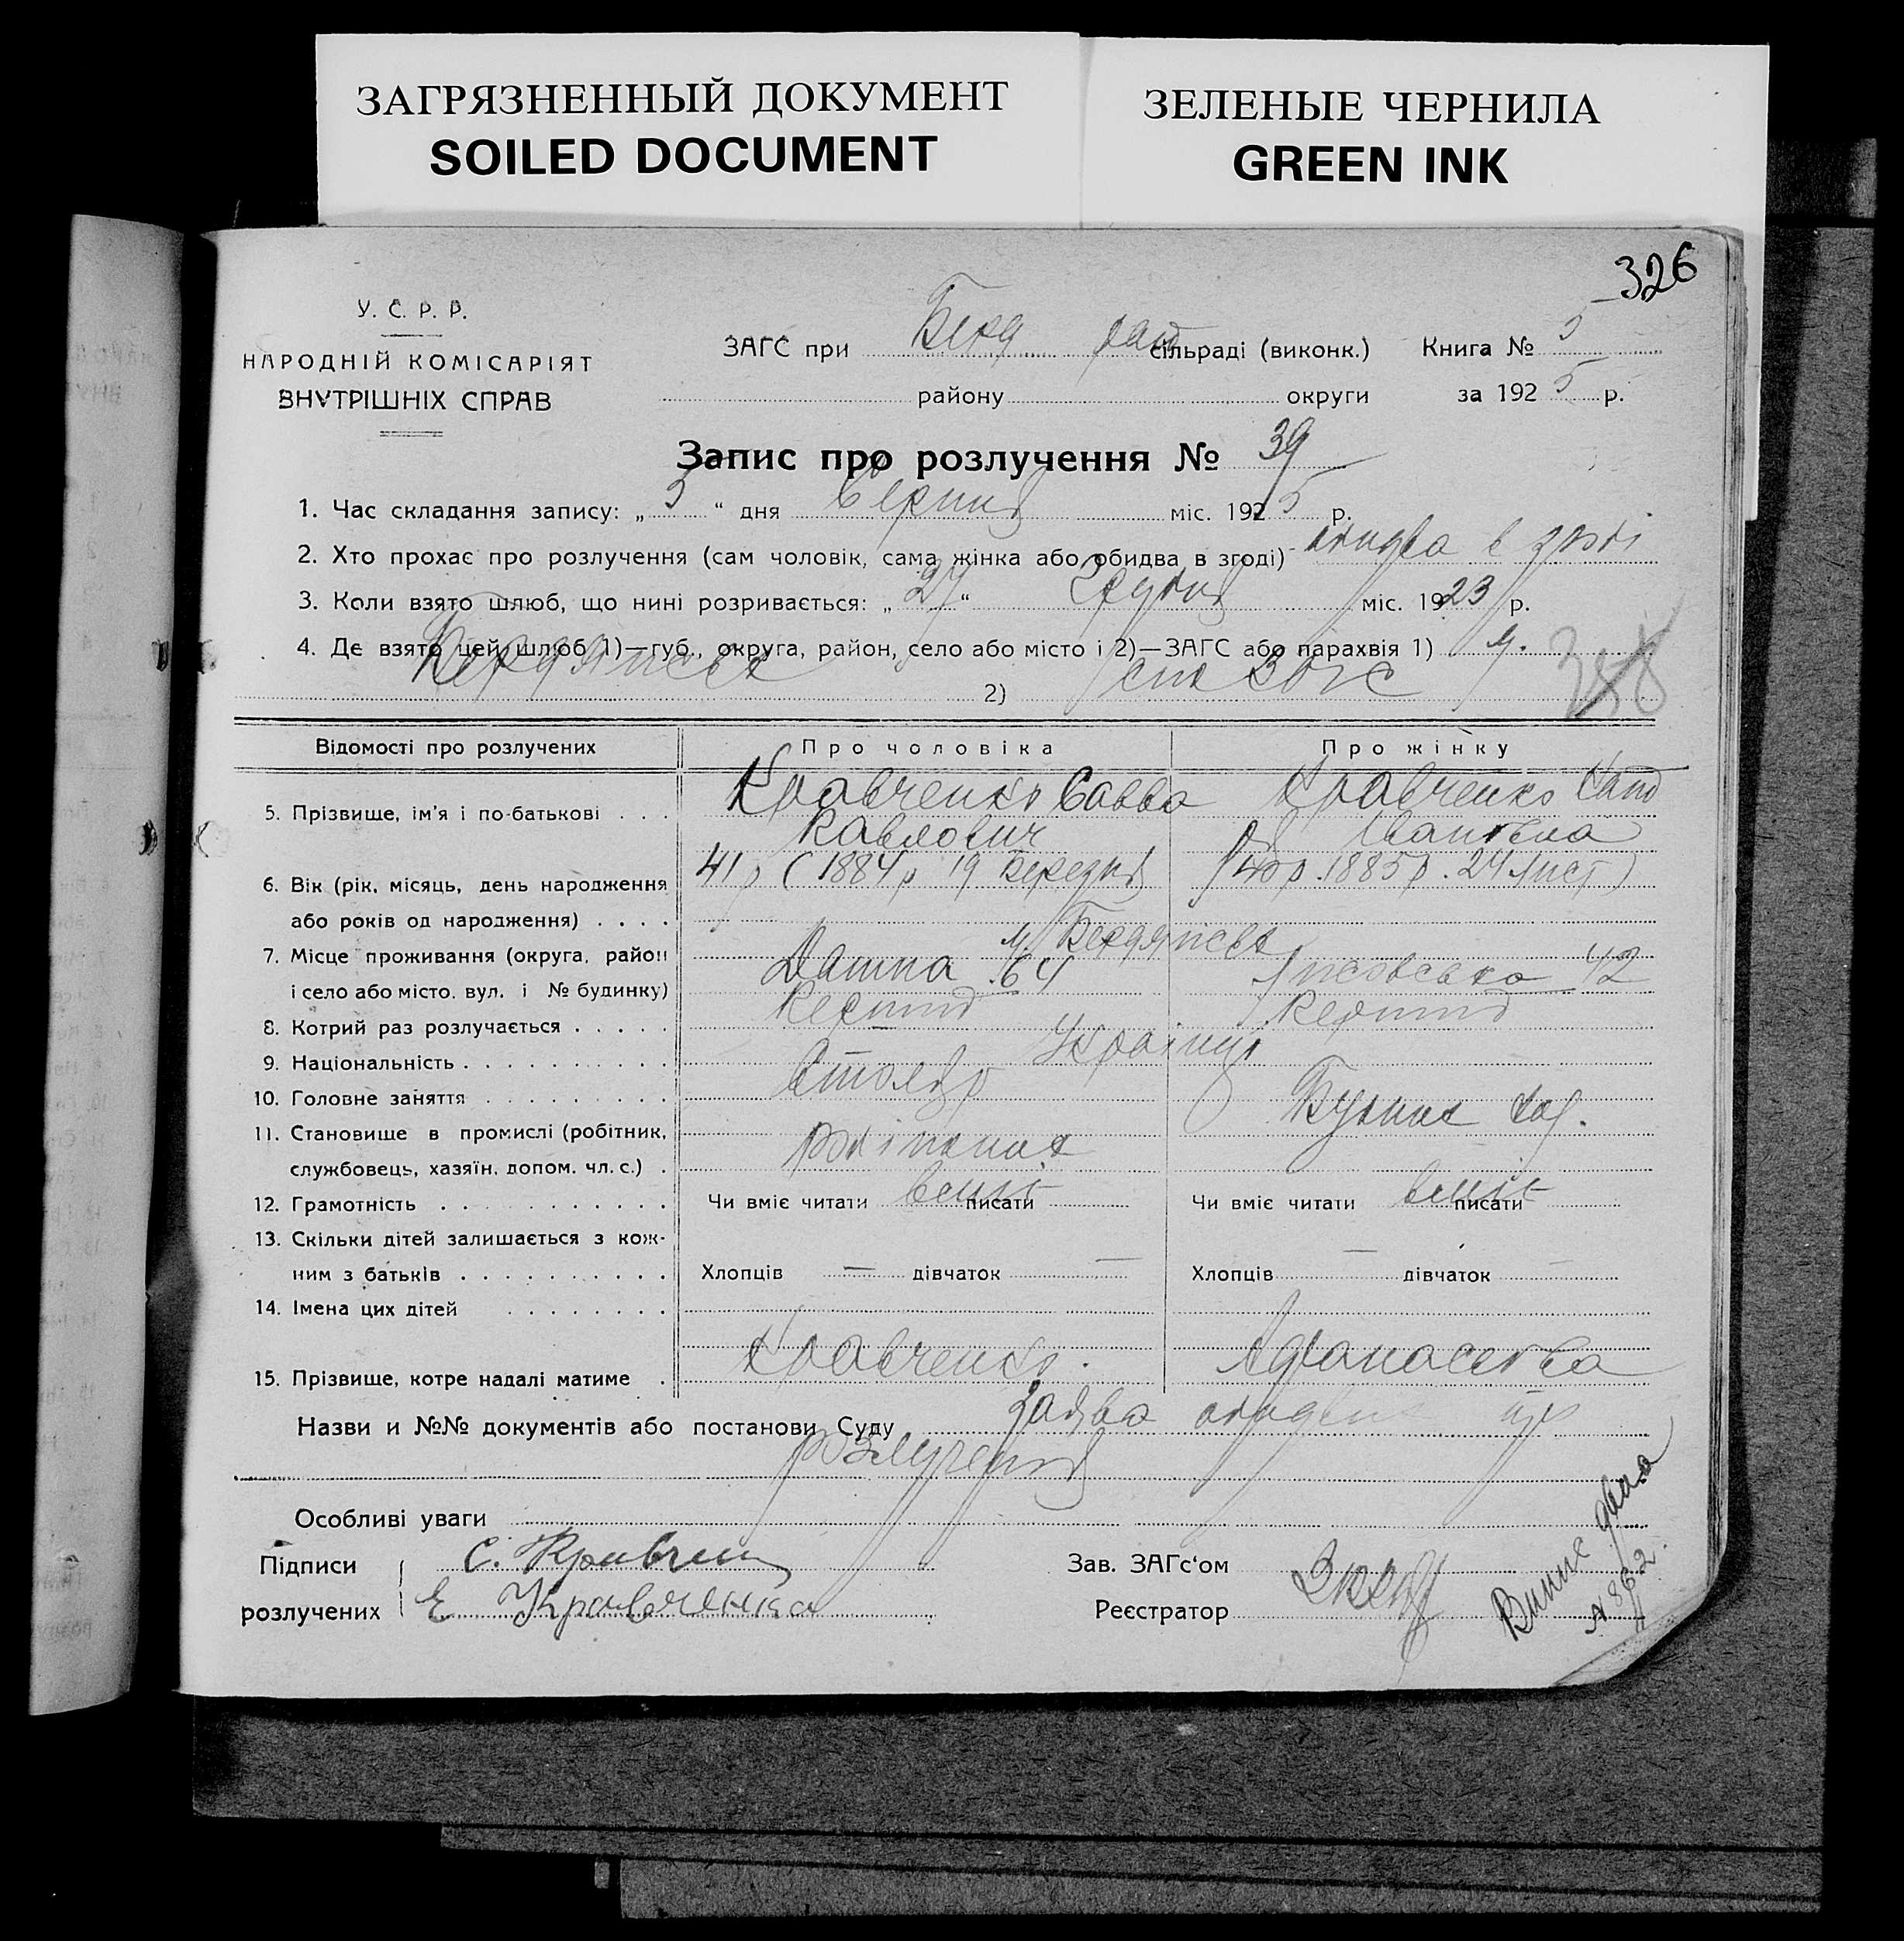 ЗАГРЯЗНЕННЫЙ ДОКУМЕНТ
SOILED DOCUMENT
ЗЕЛЕНЫЕ ЧЕРНИЛА
GREEN INK
326
У. С. Р. Р.
НАРОДНІЙ КОМІСАРІЯТ
ВНУТРІШНІХ СПРАВ
ЗАГС при Берд рай сільраді (виконк.) Книга № 5
району округи за 1925 р.
Запис про розлучення № 39
1. Час складання запису: „5“ дня Серпня міс. 1925 р.
2. Хто прохає про розлучення (сам чоловік, сама жінка або обидва в згоді) обидва в згоді
3. Коли взято шлюб, що нині розривається: „27“ Грудня міс. 1923 р.
4. Де взято цей шлюб 1)—губ., округа, район, село або місто і 2)—ЗАГС або парахвія 1) м.
Бердянськ 2) ЗАГС
358
Відомості про розлучених Про чоловіка Про жінку
5. Прізвище, ім'я і по-батькові . . . Кравченко Савва Павлович Кравченко Іванівна
6. Вік (рік, місяць, день народження 41 р (1884 р 19 Березня) (40 р. 1885 р. 24 Лист)
або років од народження) . . . .
7. Місце проживання (округа, район м. Бердянськ
і село або місто, вул. і № будинку) 64 42
8. Котрий раз розлучається . . . . . Перший Перший
9. Національність . . . . . . . . . . . Українці
10. Головне заняття . . . . . . . . . Столяр
11. Становище в промислі (робітник,
службовець, хазяїн, допом. чл. с.) . робітник
12. Грамотність . . . . . . . . . . . . Чи вміє читати вміє писати Чи вміє читати вміє писати
13. Скільки дітей залишається з кож-
ним з батьків . . . . . . . . . . Хлопців — дівчаток — Хлопців — дівчаток —
14. Імена цих дітей . . . . . . . .
15. Прізвище, котре надалі матиме . Кравченко. Афанасєва
Назви и №№ документів або постанови Суду Заява обидвох про
розлучення
Особливі уваги
Підписи С. Кравченко Зав. ЗАГс‘ом
розлучених Е Кравченка Реєстратор
№ 862.